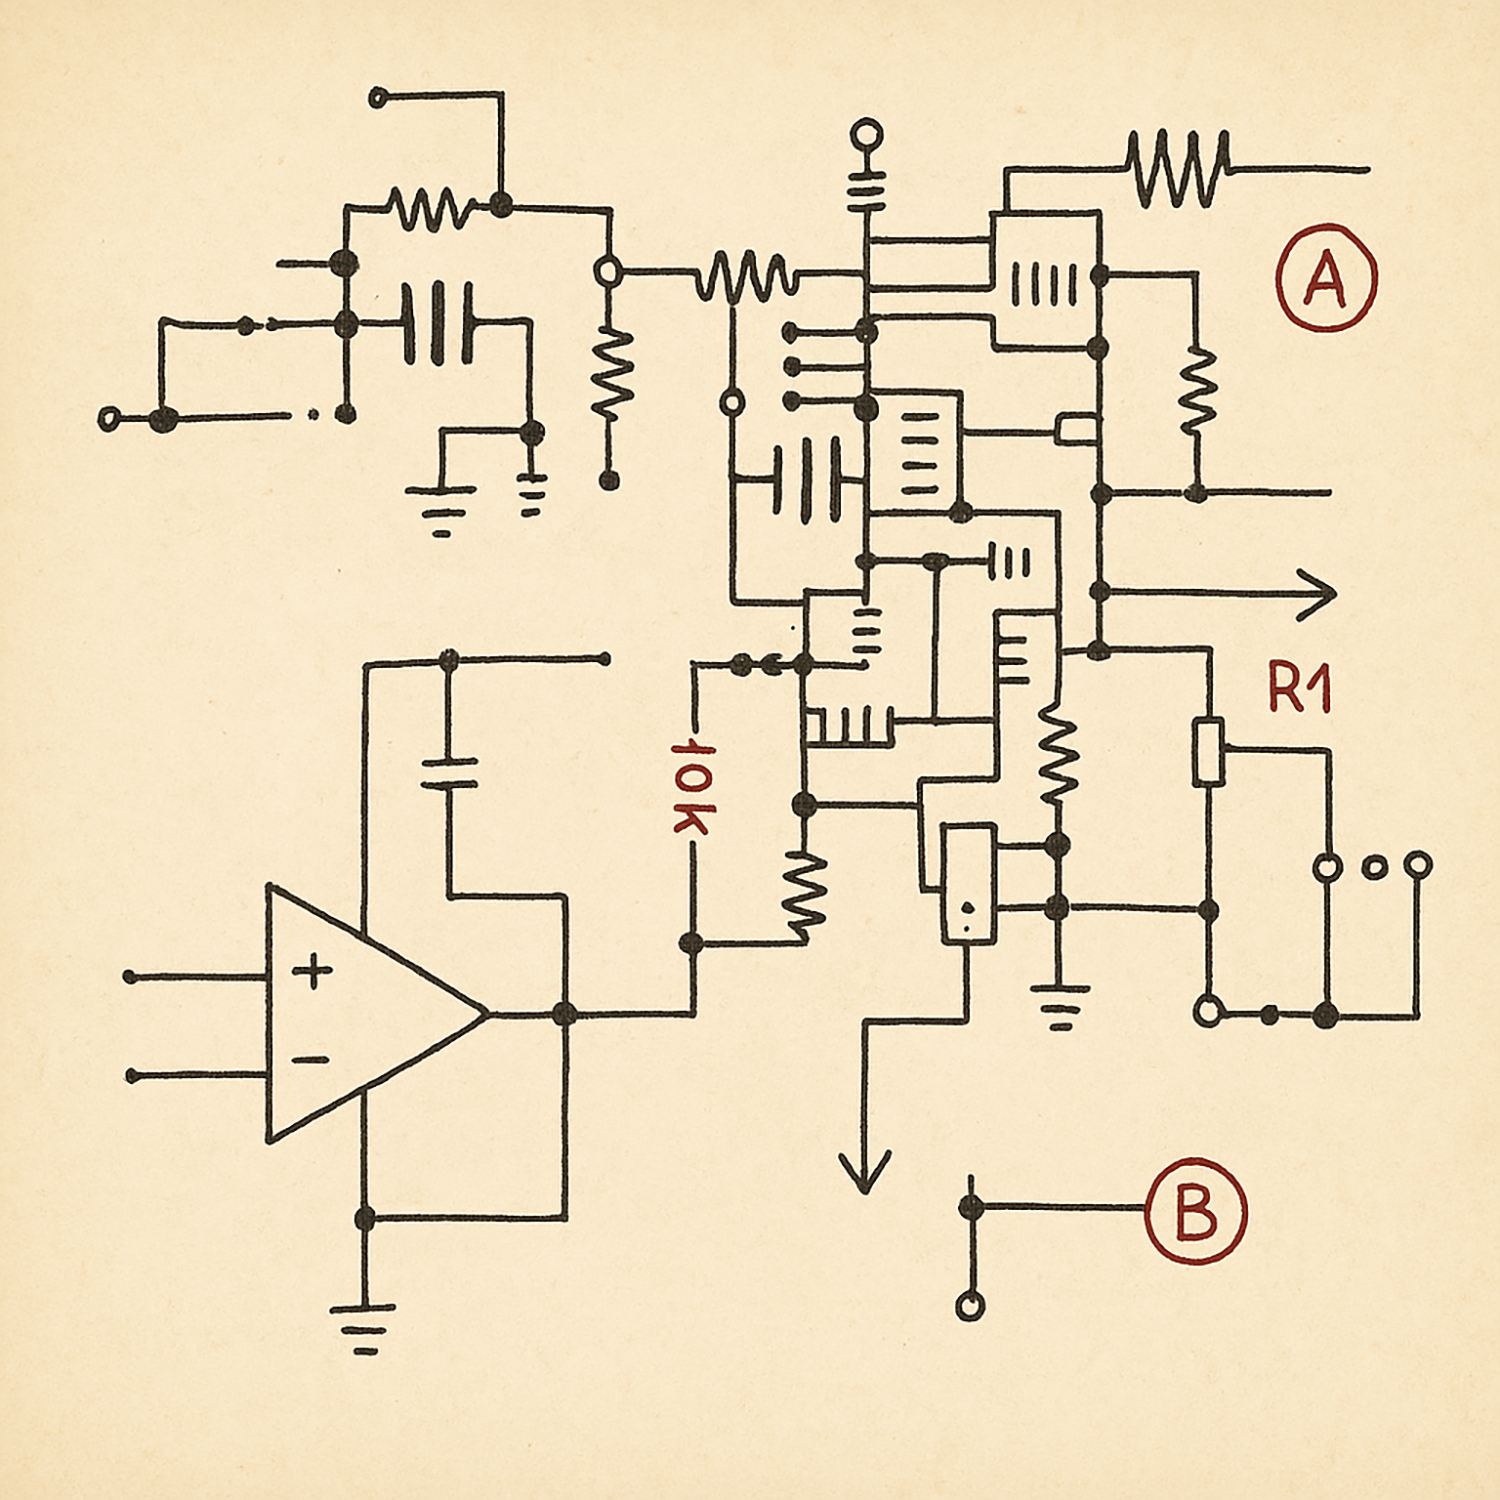 A
R1
10K
+
−
B